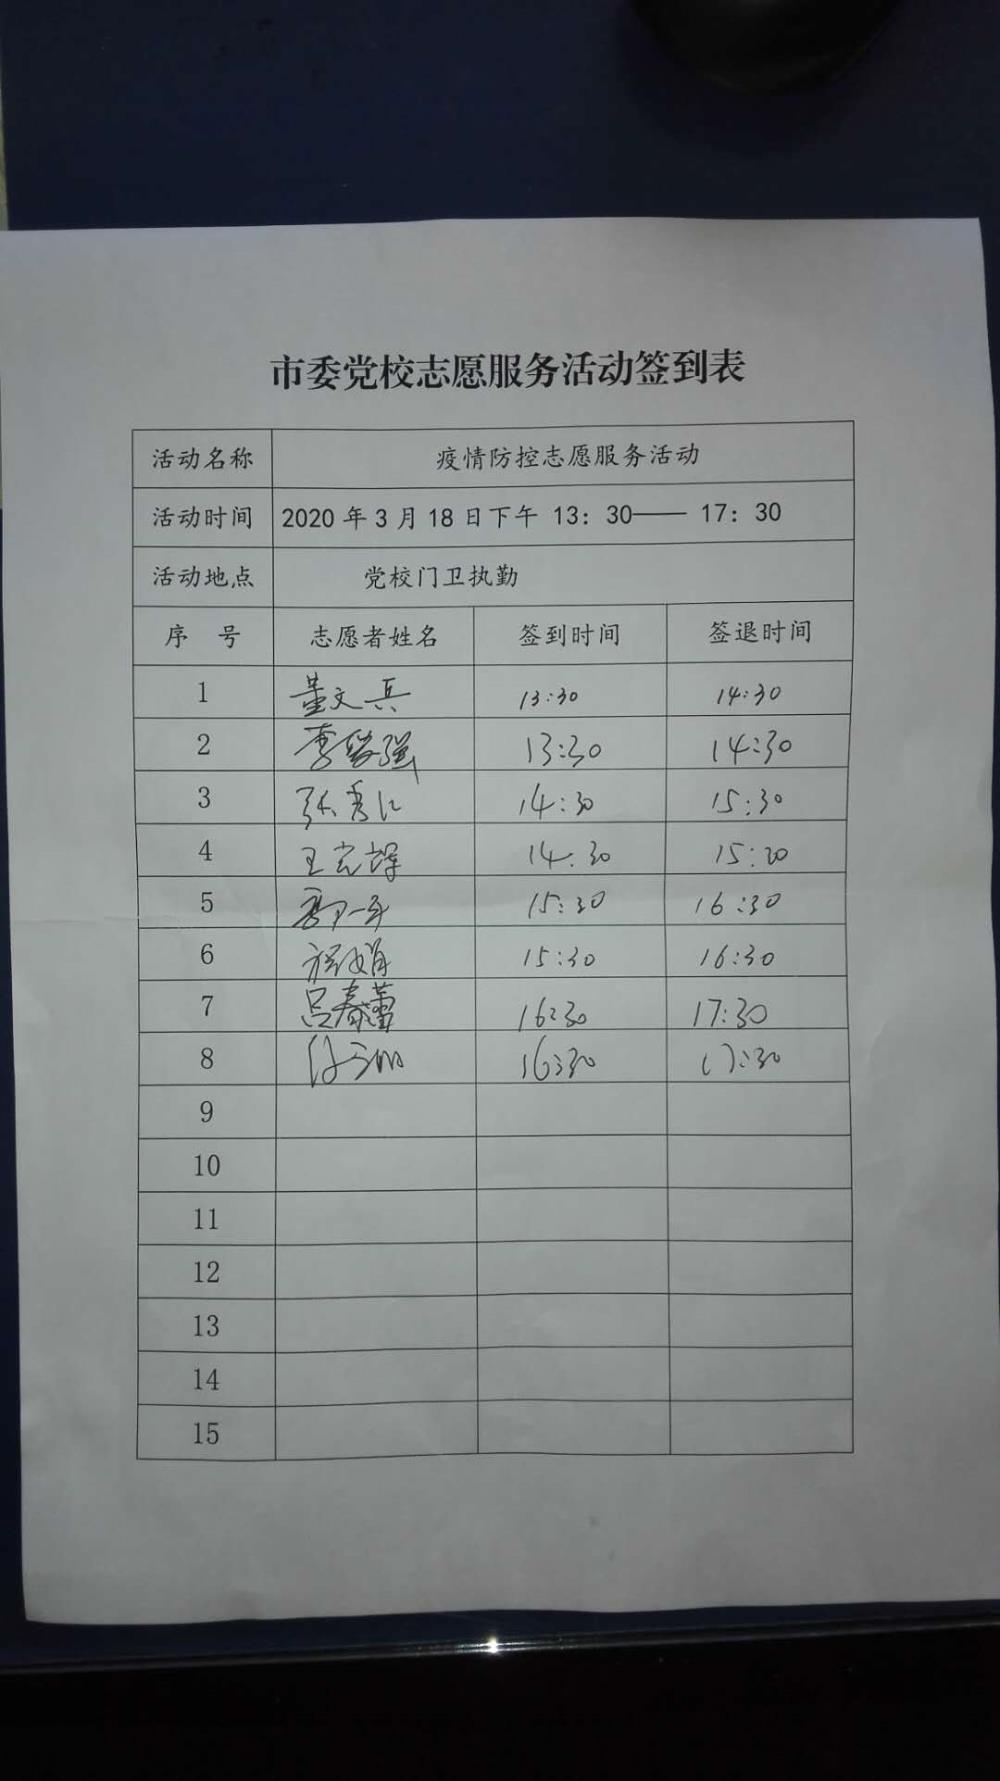 市委党校志愿服务活动签到表
活动名称 疫情防控志愿服务活动
活动时间 2020年3月18日下午 13：30—— 17：30
活动地点 党校门卫执勤
序 号 志愿者姓名 签到时间 签退时间
1 董文兵 13:30 14:30
2 李 强 13:30 14:30
3 张秀仁 14:30 15:30
4 王宪辉 14:30 15:30
5 15:30 16:30
6 程娟 15:30 16:30
7 吕春蕾 16:30 17:30
8 16:30 17:30
9
10
11
12
13
14
15